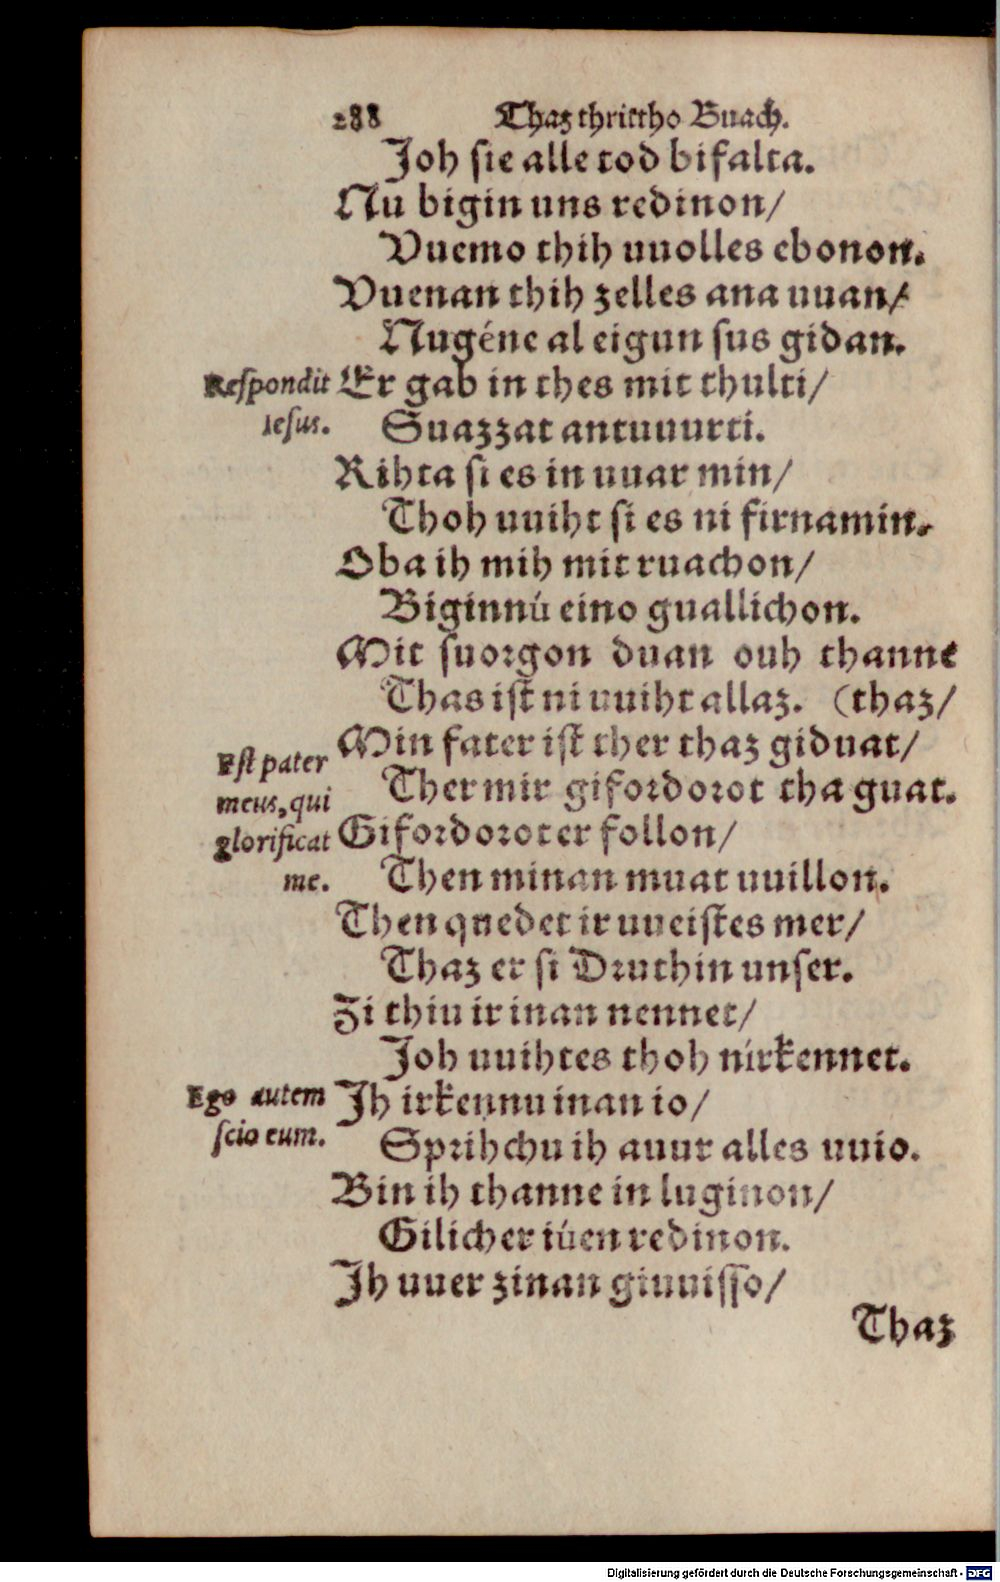 288 Thaz thrittho Buach.
Joh sie alle tod bifalta.
Nu bigin uns redinon/
Vuemo thih uuolles ebonon.
Vuenan thih zelles ana uuan/
Nugéne al eigun sus gidan.
Respondit Er gab in thes mit thulti/
Iesus. Suazzat antuuurti.
Rihta si es in uuar min/
Thoh uuiht si es ni firnamin.
Oba ih mih mit ruachon/
Biginnú eino guallichon.
Mit suorgon duan ouh thanne
Thas ist ni uuiht allaz. (thaz/
Est pater Min fater ist ther thaz giduat/
meus, qui Ther mir gifordorot tha guat.
glorificat Gifordorot er follon/
me. Then minan muat uuillon.
Then quedet ir uueistes mer/
Thaz er si Druthin unser.
Zi thiu ir inan nennet/
Joh uuihtes thoh nírkennet.
Ego autem Jh irkennu inan io/
scio eum. Sprihchu ih auur alles uuio.
Bin ih thanne in luginon/
Gilicher iúen redinon.
Jh uuer zinan giuuisso/
Thaz
Digitalisierung gefördert durch die Deutsche Forschungsgemeinschaft - DFG